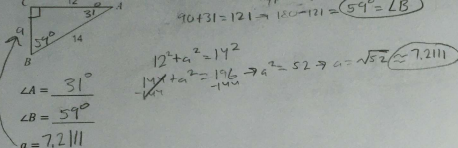 C 12 A
31°
a
59° 14
B
90+31=121→180-121=59°=∠B
12²+a²=14²
144+a²=196→a²=52→a=√52≈7.2111
-144 -144
∠A = 31°
∠B = 59°
a = 7.2111